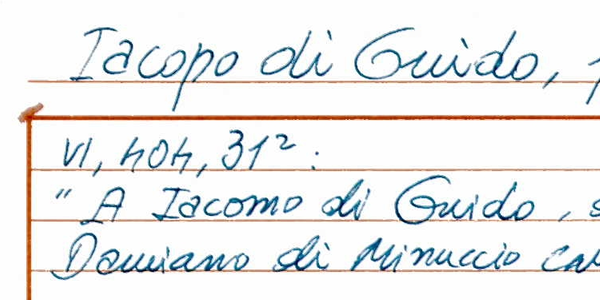 Iacopo di Guido,
VI, 404, 31²:
"A Iacomo di Guido,
Damiano di Minuccio